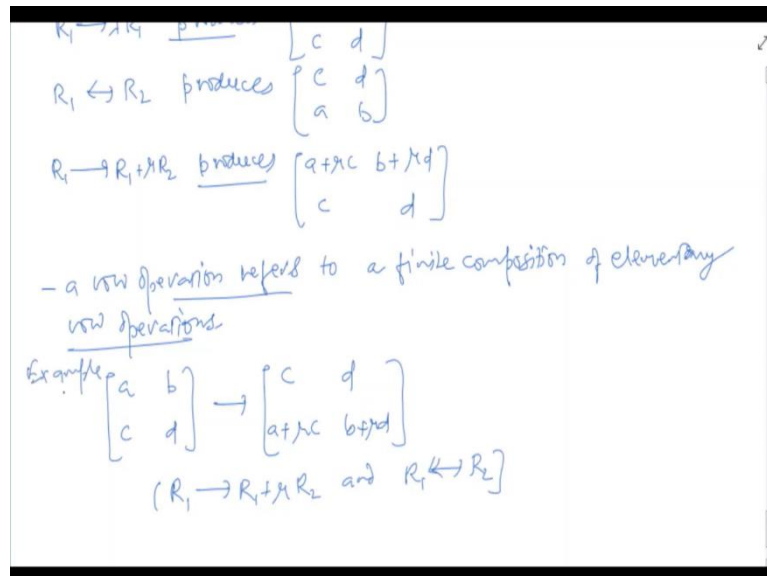 R₁ → λR₁ produces
[c d]
R₁ ↔ R₂ produces [c d
a b]
R₁ → R₁+μR₂ produces [a+μc b+μd
c d]
- a row operation refers to a finite composition of elementary
row operations.
Example [a b
c d] → [c d
a+μc b+μd]
(R₁ → R₁+μR₂ and R₁ ↔ R₂]